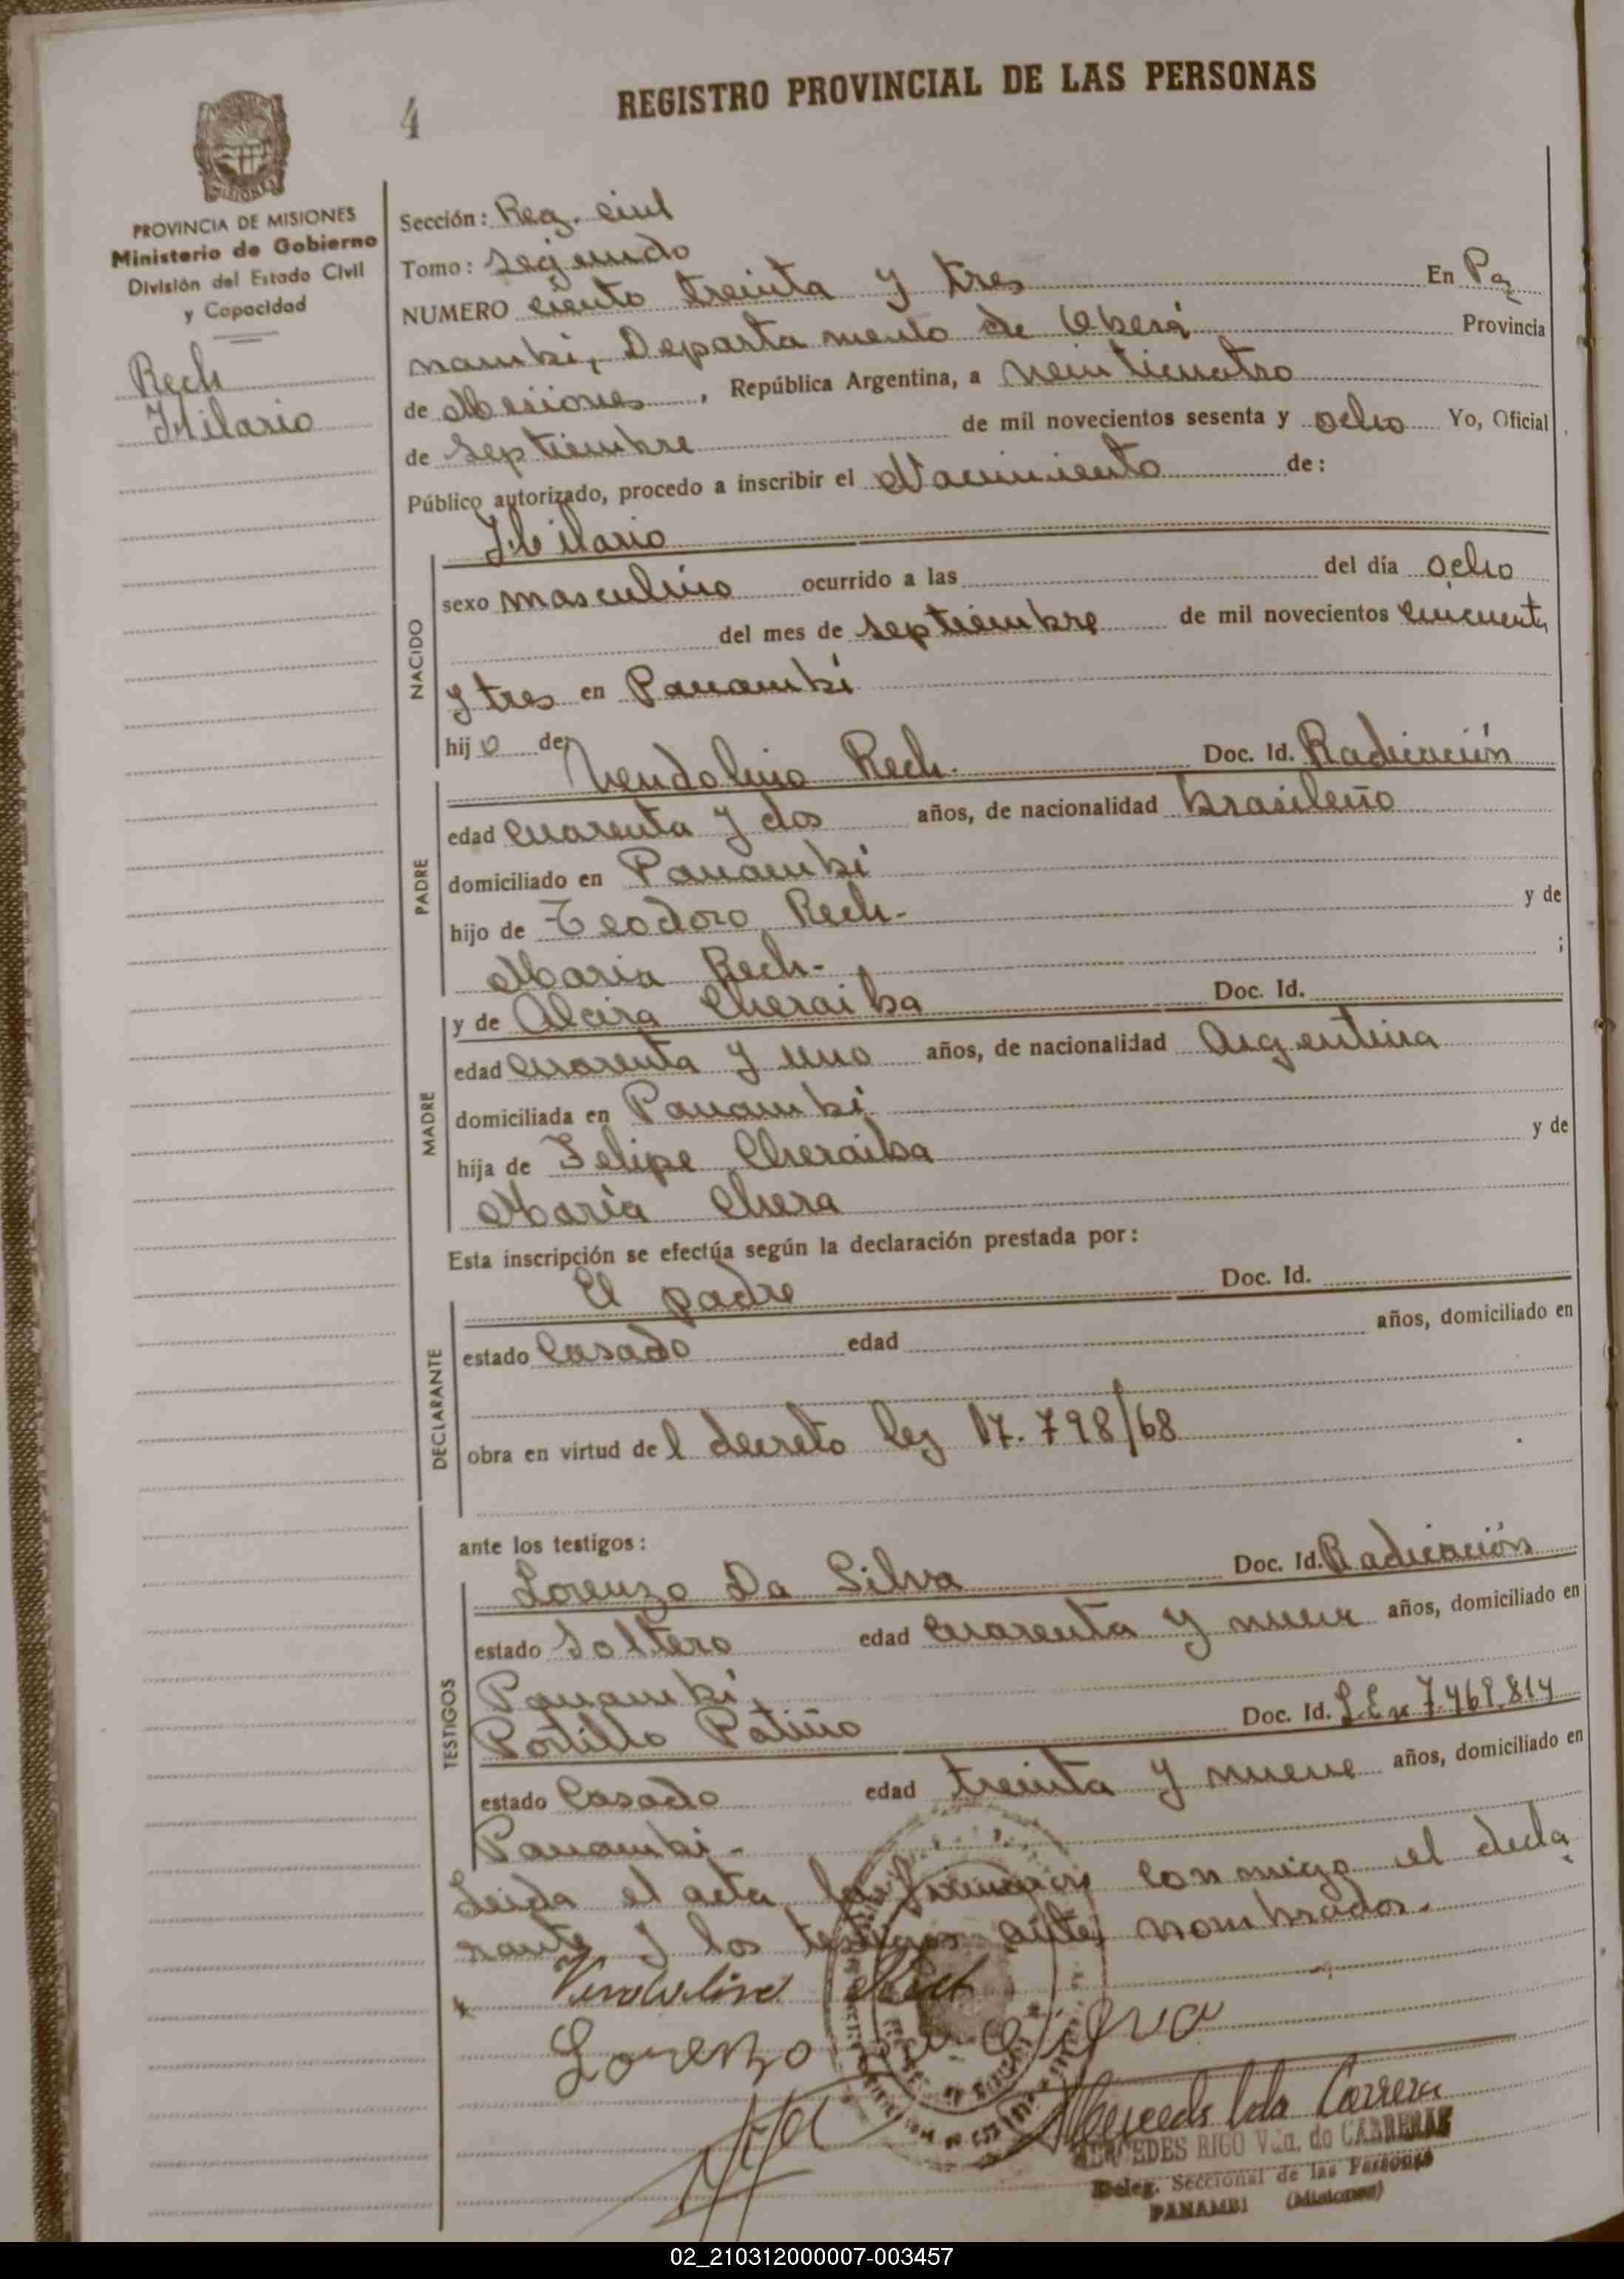 REGISTRO PROVINCIAL DE LAS PERSONAS
4
MISIONES
PROVINCIA DE MISIONES
Ministerio de Gobierno
División del Estado Civil
y Capacidad
Rech
Hilario
Sección: Reg. civil
Tomo: Segundo
NUMERO ciento treinta y tres En Pa
nambi, Departamento de Oberá Provincia
de Misiones, República Argentina, a veinticuatro
de septiembre de mil novecientos sesenta y ocho Yo, Oficial
Público autorizado, procedo a inscribir el Nacimiento de:
Hilario
NACIDO
sexo masculino ocurrido a las del día ocho
del mes de septiembre de mil novecientos cincuenta
y tres en Panambi
hijo de:
PADRE
Vendolino Rech. Doc. Id. Radicación
edad cuarenta y dos años, de nacionalidad brasileño
domiciliado en Panambi
hijo de Teodoro Rech- y de
Maria Rech- ;
MADRE
y de Alcira Cheraiba Doc. Id.
edad cuarenta y uno años, de nacionalidad Argentina
domiciliada en Panambi
hija de Felipe Cheraiba y de
María Chera
Esta inscripción se efectúa según la declaración prestada por:
DECLARANTE
El padre Doc. Id.
estado Casado edad años, domiciliado en
obra en virtud del decreto ley 17.798/68
ante los testigos:
TESTIGOS
Lorenzo Da Silva Doc. Id. Radicación
estado Soltero edad cuarenta y nueve años, domiciliado en
Panambi,
Portillo Patiño Doc. Id. L.E. nº 7.469.814
estado Casado edad treinta y nueve años, domiciliado en
Panambi-
Leida el acta la firmaron conmigo el decla
rante y los testigos antes nombrados.
Vendolino Rech
Lorenzo Da Silva
Mercedes Vda Carrera
MERCEDES RIGO Vda. de CABRERA
Deleg. Seccional de las Personas
PANAMBI (Misiones)
02_210312000007-003457